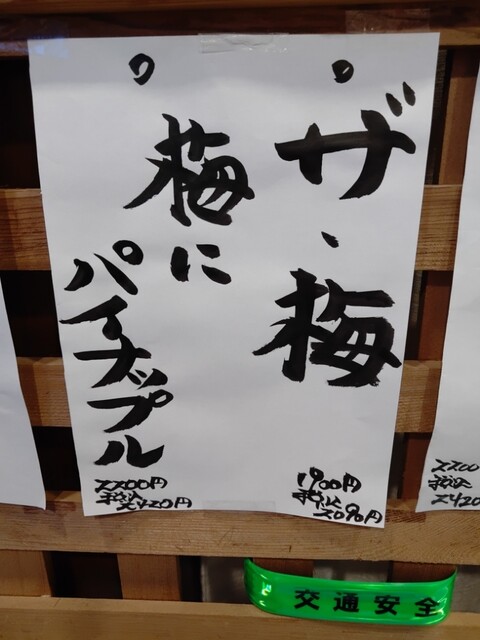 ザ・梅
1900円
税込
2090円
梅に
パイナップル
2200円
税込
2420円
2200
税込
2420
交通安全